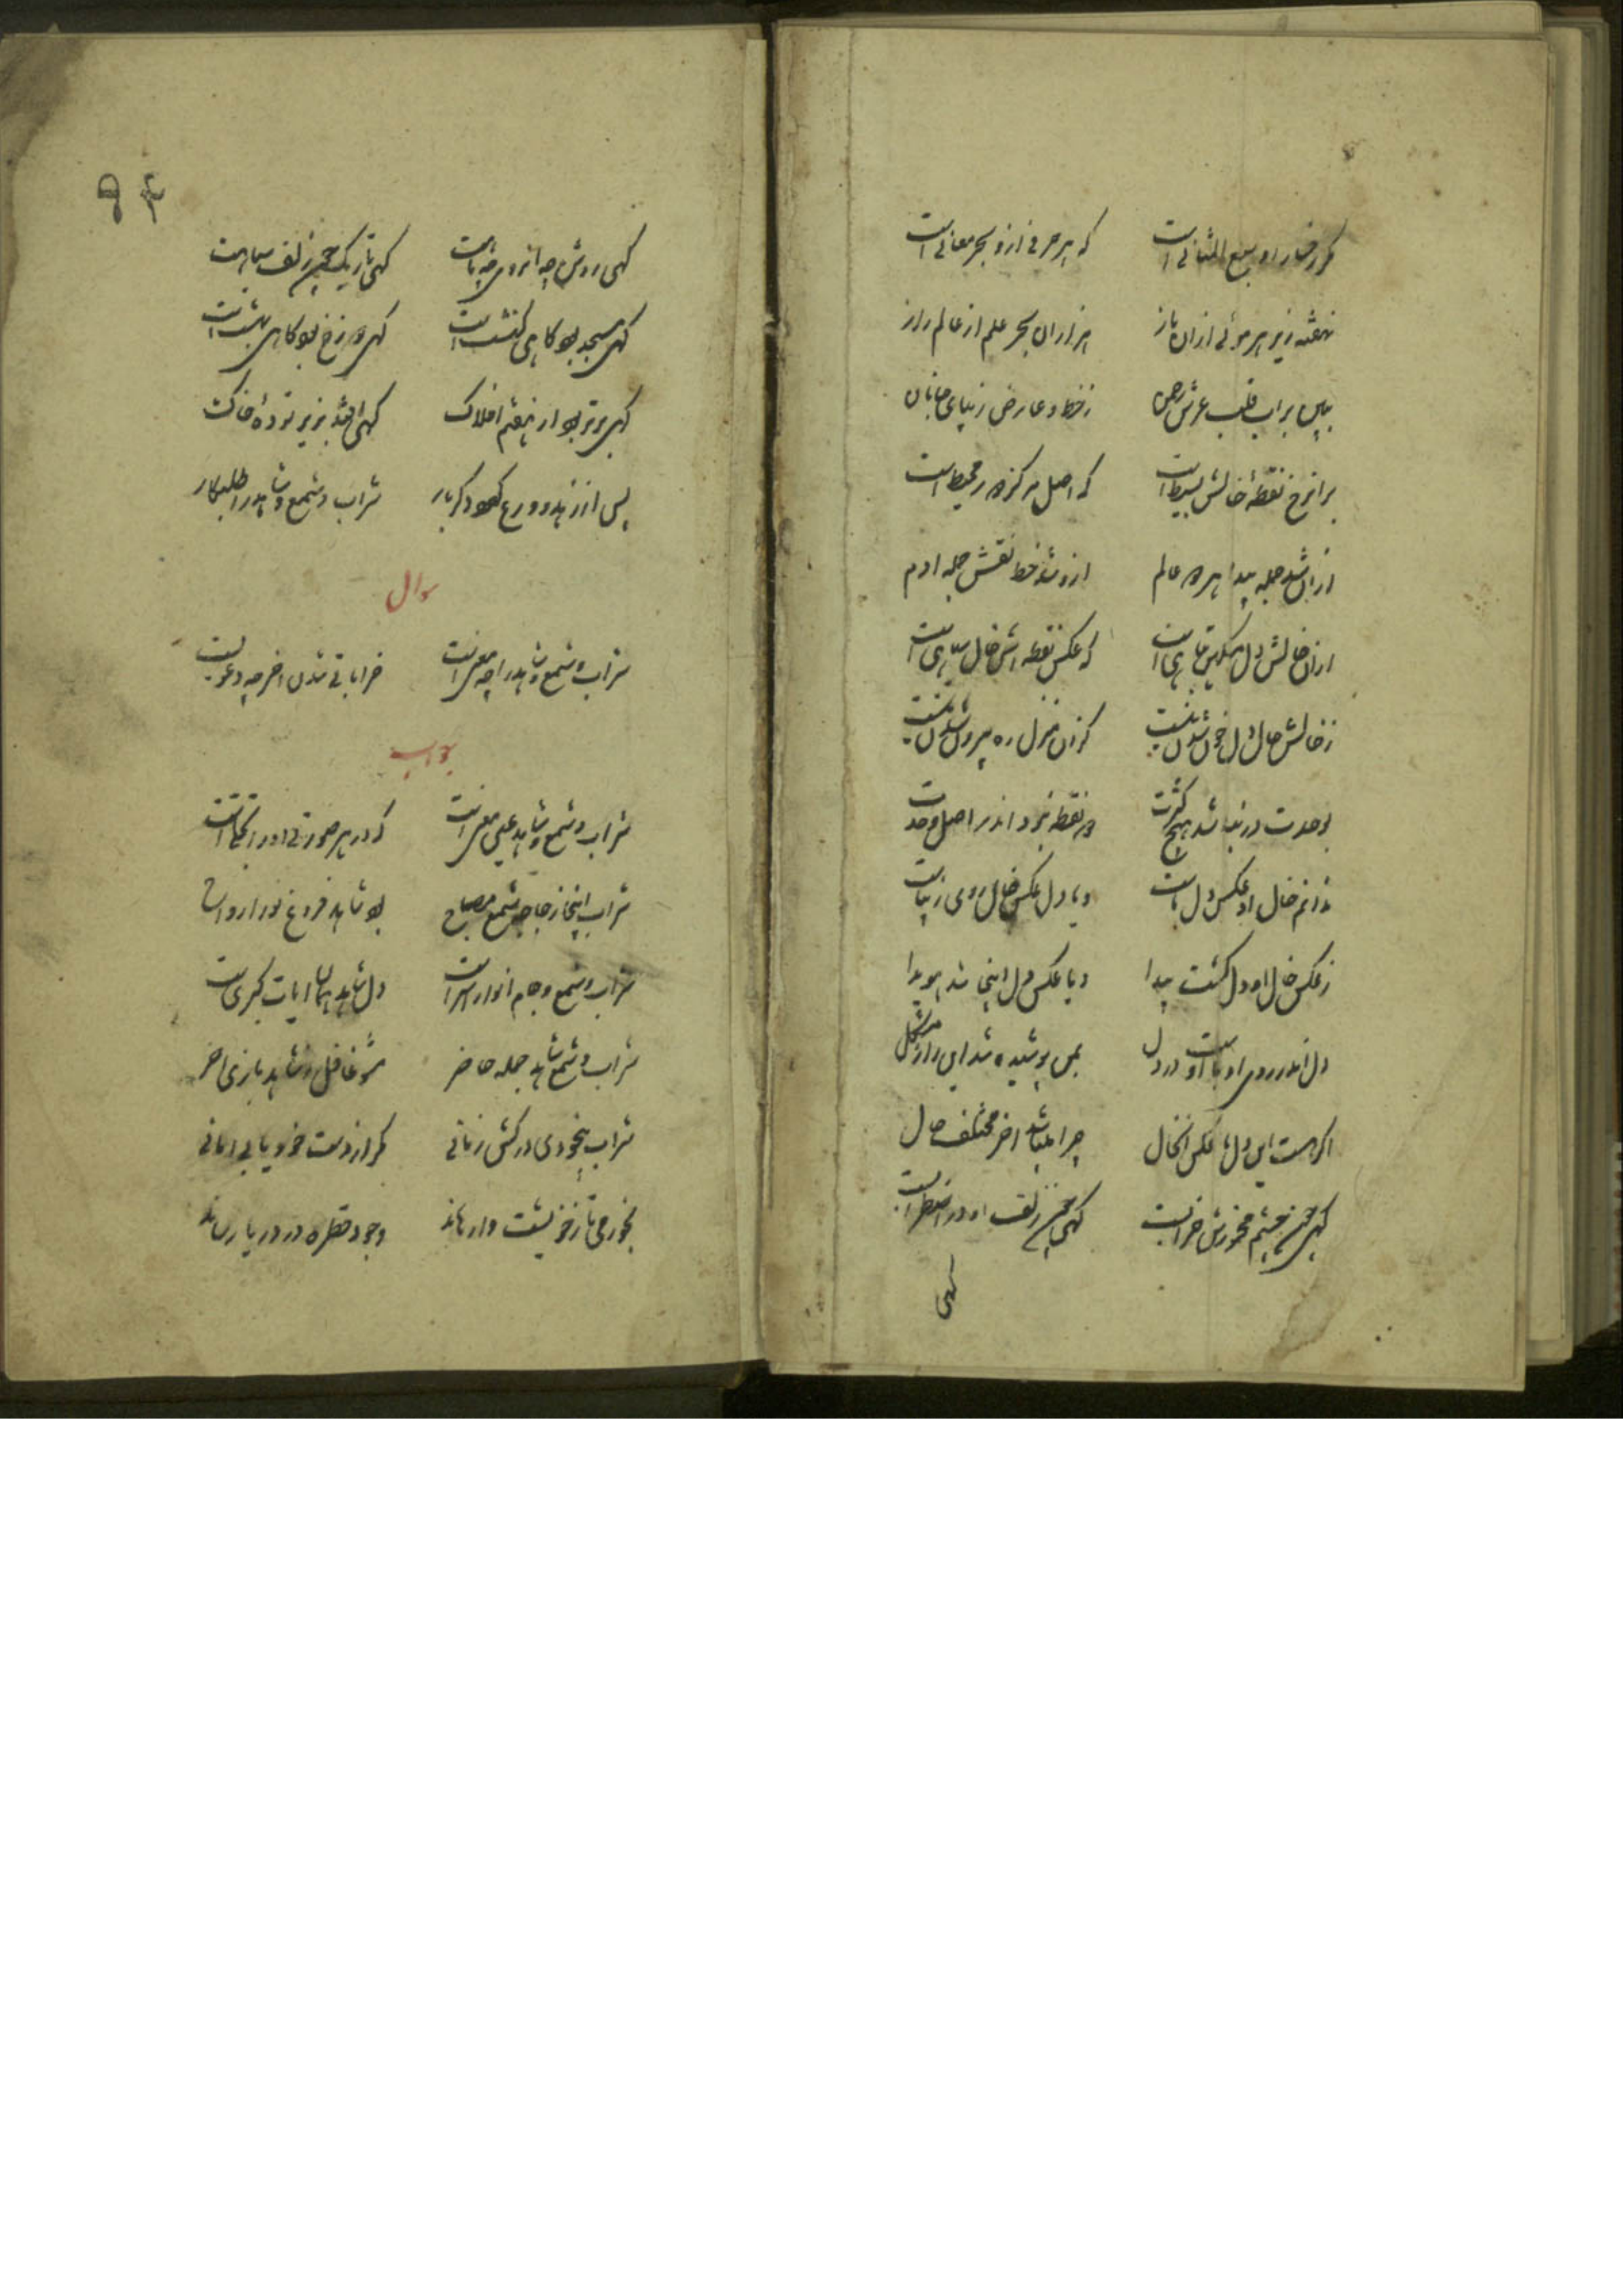 مکر رخسار او سبع المثانی است که هر حرفی ازو بحر معانی است
نهفته زیر هر موئی ازان باز هزاران بحر علم از عالم راز
ببین بر اب قلب عرش رحمن ز خط و عارض زیبای جانان
بران رخ نقطهٔ خالش بسیط است که اصل مرکز دور محیط است
ازان شد جمله پیدا هر دو عالم ازو شد خط نقش جمله ادم
ازان خالش دل پرخون تباهی است که عکس نقطه اش خال سیاهی است
ز خالش حال دل خون شدن نیست کزان منزل ره بیرون شدن نیست
بوحدت در نباشد هیچ کثرت دو نقطه نبود اندر اصل وحدت
ندانم خال او عکس دل ماست و یا دل عکس خال روی زیباست
ز عکس خال او دل کشت پیدا و یا عکس دل اینجا شد هویدا
دل اندر روی او یا اوست در دل بمن پوشیده شد این راز مشکل
اکر هست این دل ما عکس انخال چرا میباشد اخر مختلف حال
کهی چون چشم مخمورش خرابست کهی چون زلف او در اضطرابست
کهی
۹۴
کهی روشن چو انروی چو ماهست کهی تاریک چون زلف سیاهست
کهی مسجد بود کاهی کنشت است کهی دوزخ بود کاهی بهشت است
کهی برتر بود از هفتم افلاک کهی افتد بزیر تودهٔ خاک
پس از زهد و ورع کردد دکر بار شراب و شمع و شاهد را طلبکار
سوال
شراب و شمع و شاهد را چه معنی است خراباتی شدن اخر چه دعویست
جواب
شراب و شمع و شاهد عین معنی است که در هر صورتی او را تجلی است
شراب اینجا زجاجه شمع مصباح بود شاهد فروغ نور ارواح
شراب و شمع و جام انوار اسراست ولی شاهد همان ایات کبریست
شراب و شمع و شاهد جمله حاضر مشو غافل ز شاهد بازی اخر
شراب بیخودی درکش زمانی مکر از دست خود یابی امانی
بخور می تا ز خویشت وارهاند وجود قطره در دریا رساند